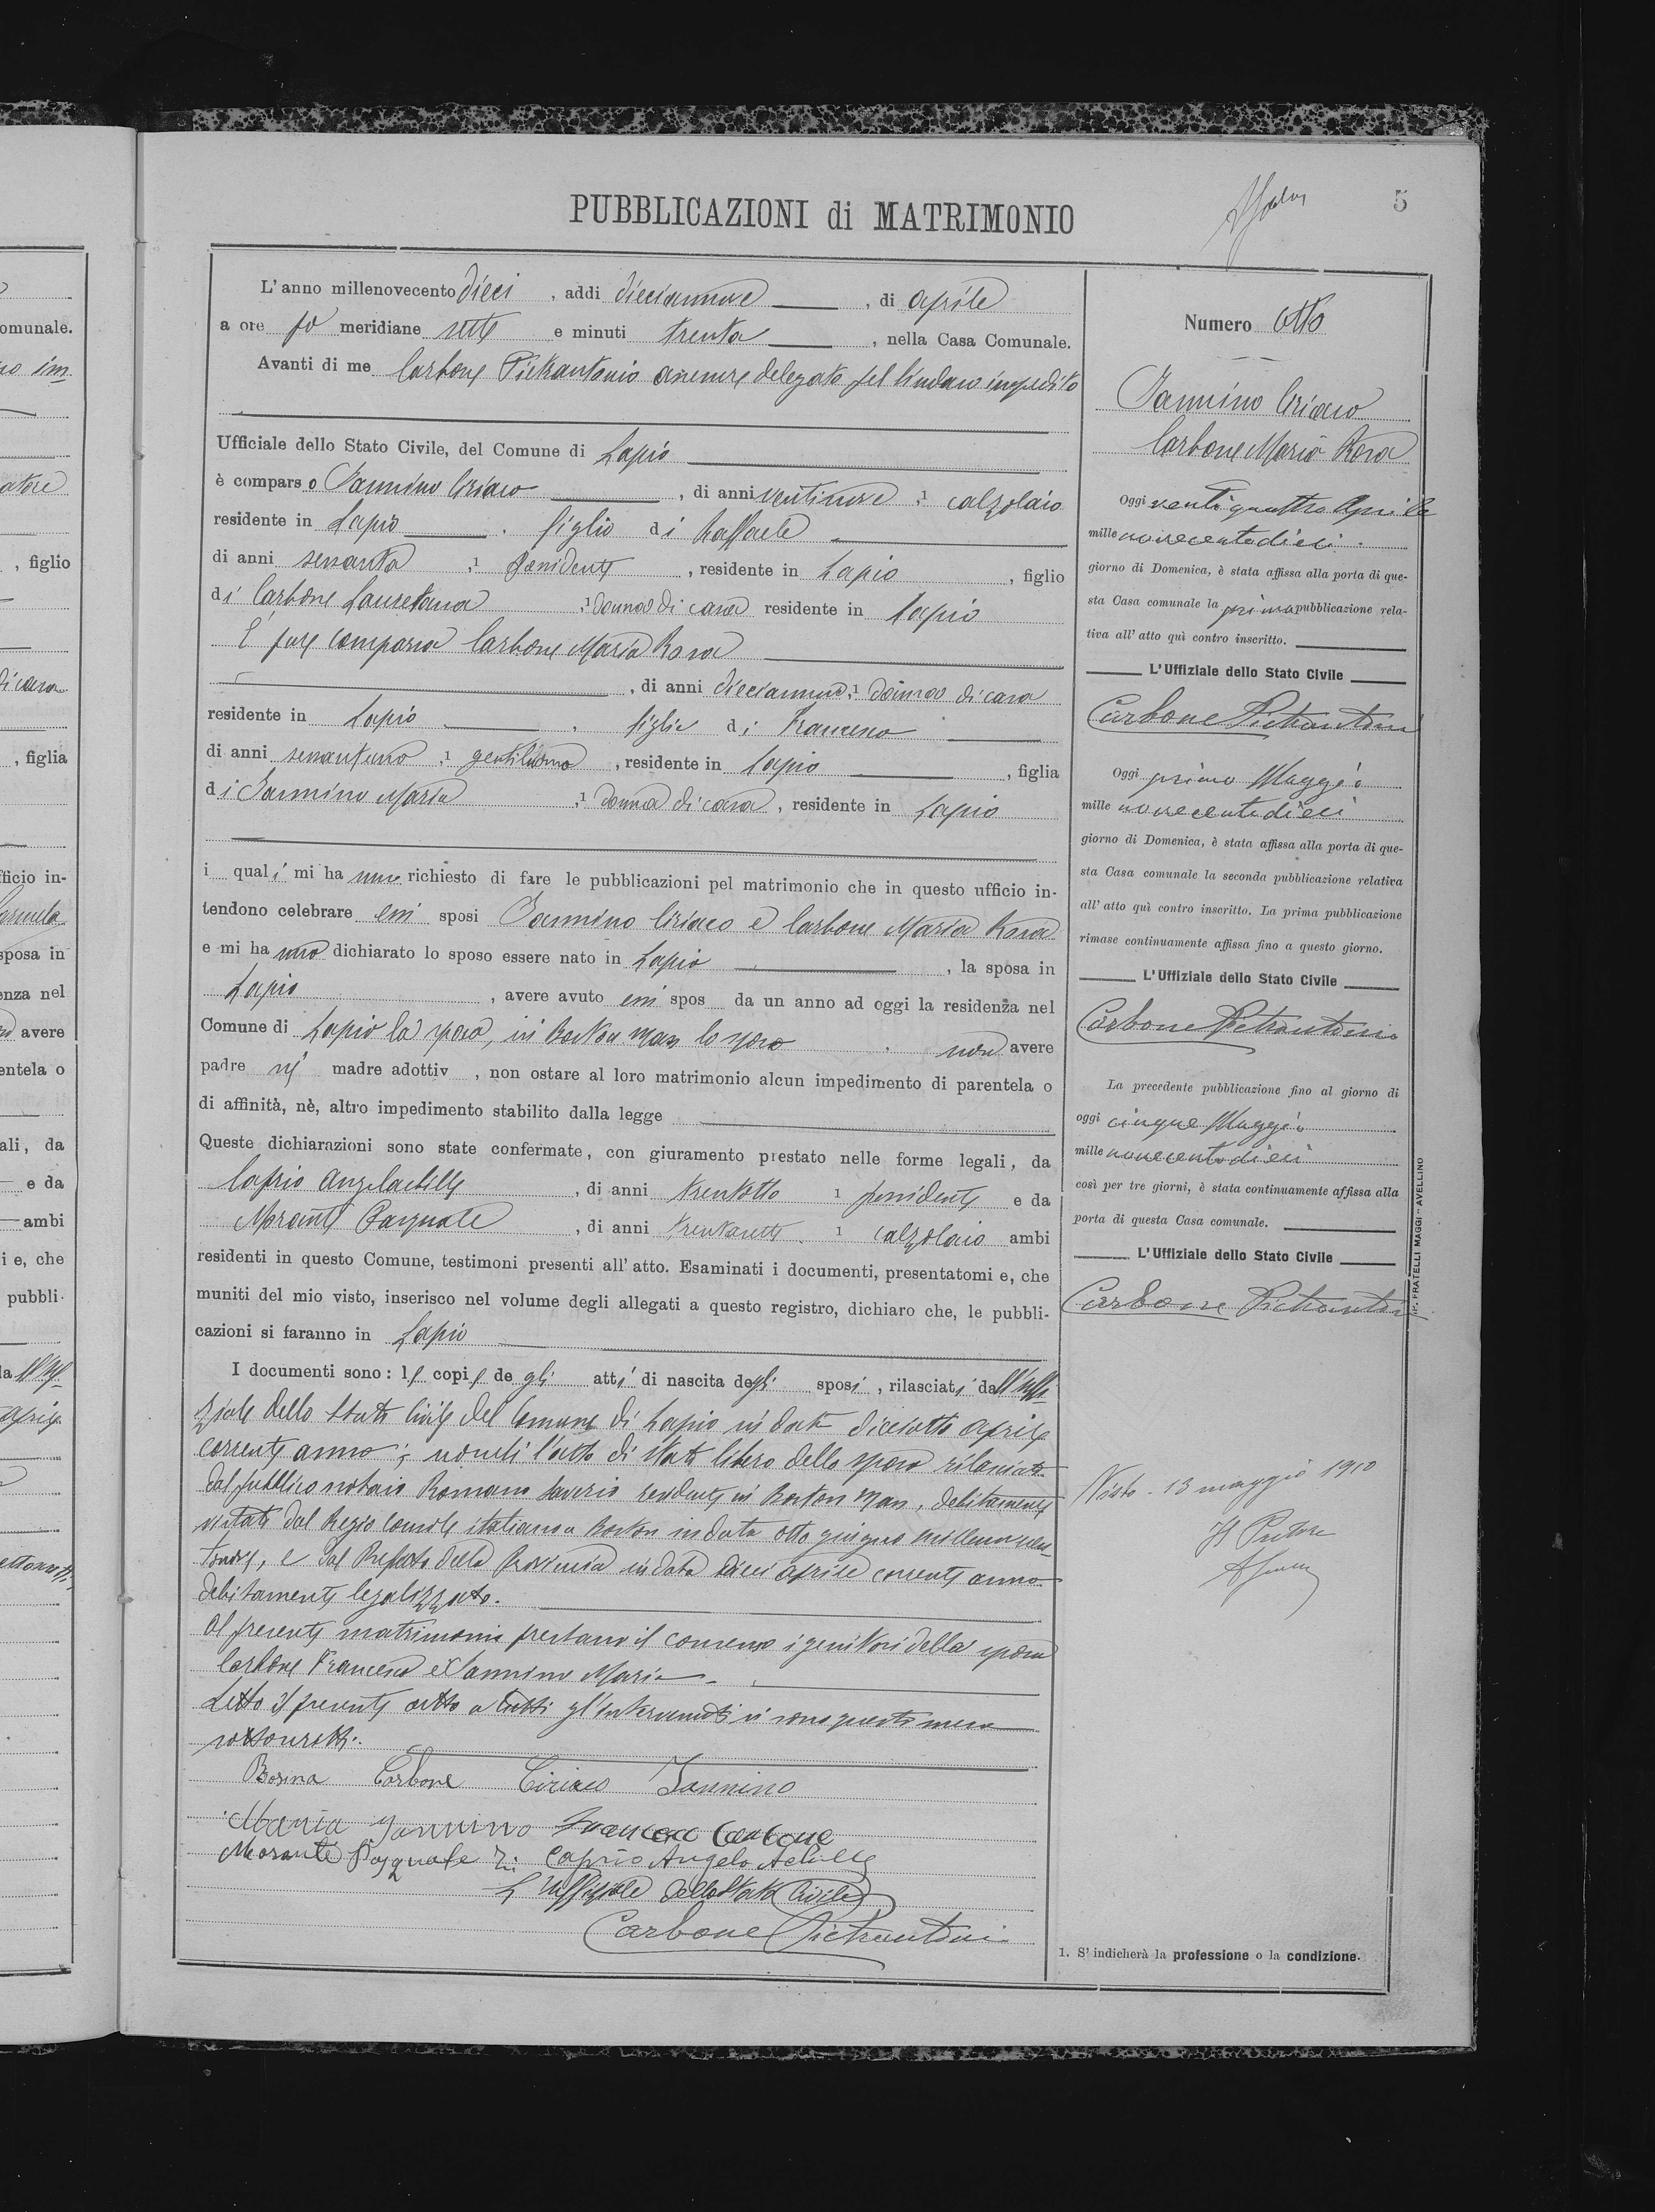 omunale.
im
atore
, figlio
di casa
, figlia
fficio in-
sposa in
enza nel
avere
entela o
ali, da
e da
ambi
i e, che
pubbli-
PUBBLICAZIONI di MATRIMONIO
5
L'anno millenovecento dieci , addi diciannove , di aprile
a ore po meridiane sette e minuti trenta , nella Casa Comunale.
Avanti di me Carbone Pietrantonio assessore delegato pel Sindaco impedito
Ufficiale dello Stato Civile, del Comune di Lapio
è compars o Iannino Ciriaco , di anni ventinove , 1 calzolaio
residente in Lapio , figlio di Raffaele
di anni sessanta , 1 possidente , residente in Lapio , figlio
di Carbone Lauretana , 1 donna di casa residente in Lapio
È pure comparsa Carbone Maria Rosa
, di anni diciannove , 1 donna di casa
residente in Lapio , figlia di Francesco
di anni sessantuno , 1 gentiluomo , residente in Lapio , figlia
di Iannino Maria , 1 donna di casa , residente in Lapio
i quali mi hanno richiesto di fare le pubblicazioni pel matrimonio che in questo ufficio in-
tendono celebrare essi sposi Iannino Ciriaco e Carbone Maria Rosa
e mi hanno dichiarato lo sposo essere nato in Lapio , la sposa in
Lapio , avere avuto essi spos da un anno ad oggi la residenza nel
Comune di Lapio la sposa, in Boston Mass lo sposo . non avere
padre nè madre adottiv , non ostare al loro matrimonio alcun impedimento di parentela o
di affinità, nè, altro impedimento stabilito dalla legge
Queste dichiarazioni sono state confermate, con giuramento prestato nelle forme legali, da
Caprio Angelachille , di anni trentotto 1 possidente e da
Morante Pasquale , di anni trentasette 1 calzolaio ambi
residenti in questo Comune, testimoni presenti all'atto. Esaminati i documenti, presentatomi e, che
muniti del mio visto, inserisco nel volume degli allegati a questo registro, dichiaro che, le pubbli-
cazioni si faranno in Lapio
I documenti sono: le copie degli atti di nascita degli sposi , rilasciati dall'Uffi
ziale dello Stato Civile del Comune di Lapio in data diciotto aprile
corrente anno; nonché l'atto di stato libero dello sposo rilasciato
dal pubblico notaio Romano Saverio residente in Boston Mass, debitamente
vistato dal Regio Console italiano a Boston in data otto giugno millenovecen
tonove, e dal Prefetto della Provincia in data dieci aprile corrente anno
debitamente legalizzato.
Al presente matrimonio prestano il consenso i genitori della sposa
Carbone Francesco e Iannino Maria.
Letto il presente atto a tutti gl'intervenuti si sono questi meco
sottoscritti.
Rosina Carbone Ciriaco Iannino
Maria Iannino Francesco Carbone
Morante Pasquale Caprio Angelo Achille
L'Uffiziale dello Stato Civile
Carbone Pietrantonio
Numero otto
Iannino Ciriaco
Carbone Maria Rosa
Oggi ventiquattro Aprile
mille novecentodieci
giorno di Domenica, è stata affissa alla porta di que-
sta Casa comunale la prima pubblicazione rela-
tiva all'atto quì contro inscritto.
L'Uffiziale dello Stato Civile
Carbone Pietrantonio
Oggi primo Maggio
mille novecentodieci
giorno di Domenica, è stata affissa alla porta di que-
sta Casa comunale la seconda pubblicazione relativa
all'atto quì contro inscritto. La prima pubblicazione
rimase continuamente affissa fino a questo giorno.
L'Uffiziale dello Stato Civile
Carbone Pietrantonio
La precedente pubblicazione fino al giorno di
oggi cinque Maggio
mille novecentodieci
così per tre giorni, è stata continuamente affissa alla
porta di questa Casa comunale.
L'Uffiziale dello Stato Civile
Carbone Pietrantonio
Visto - 13 maggio 1910
Il Pretore
1. S'indicherà la professione o la condizione.
TIP. FRATELLI MAGGI - AVELLINO